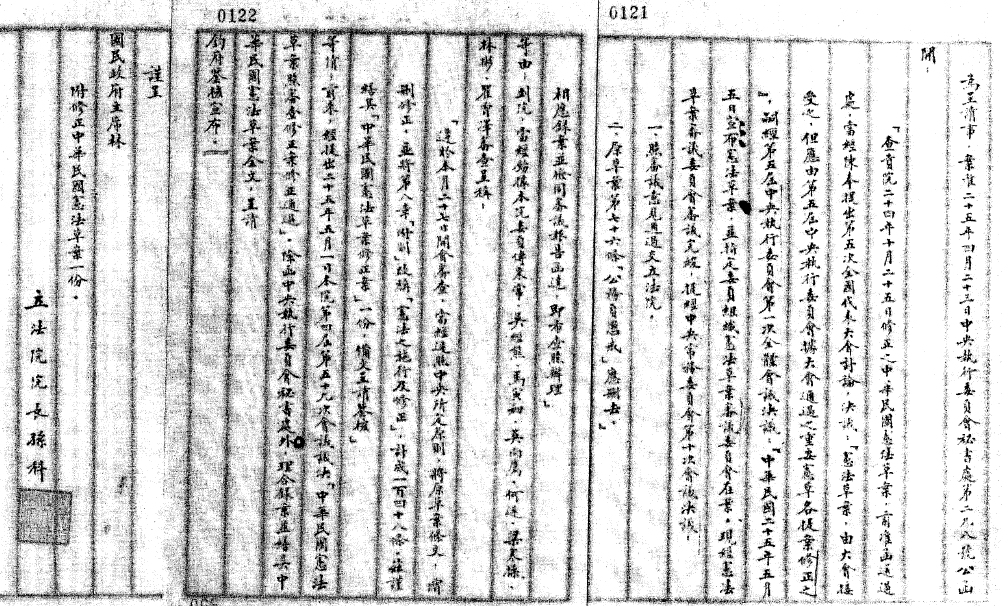 0121
為呈請事，案准二十五年四月二十三日中央執行委員會秘書處第二九八號公函
開：
「查貴院二十四年十月二十五日修正之中華民國憲法草案，前准函送過
處，當經陳奉提出第五次全國代表大會討論，決議：「憲法草案，由大會接
受之，但應由第五屆中央執行委員會據大會通過之重要憲草各提案修正之
』，嗣經第五屆中央執行委員會第一次全體會議決議：「中華民國二十五年五月
五日宣布憲法草案，並指定委員組織憲法草案審議委員會在案。現經憲法
草案審議委員會審議完竣，提經中央常務委員會第十次會議決議：
一、照審議意見通過交立法院。
二、原草案第七十六條「公務員懲戒」應刪去。」
0122
相應錄案並檢同審議報告函達，即希查照辦理」
等由；到院，當經飭據本院委員傅秉常，吳經熊，馬寅初，吳向鷹，何遂，梁寒操，
林彬，瞿曾澤審查呈稱，
「遵於本月二十七日開會審查，當經遵照中央所定原則，將原草案條文，
刪修正，並將第八章「附則」改稱「憲法之施行及修正」，計成一百四十八條，茲謹
繕具「中華民國憲法草案修正案」一份，備文呈請鑒核」
等情；前來，經提出二十五年五月一日本院第四屆第五十九次會議議決「中華民國憲法
草案照審查修正案修正通過」，除函中央執行委員會秘書處外，理合錄案並繕具中
華民國憲法草案全文，呈請
鈞府鑒核宣布。
謹呈
國民政府主席林
附修正中華民國憲法草案一份。
立法院院長孫科